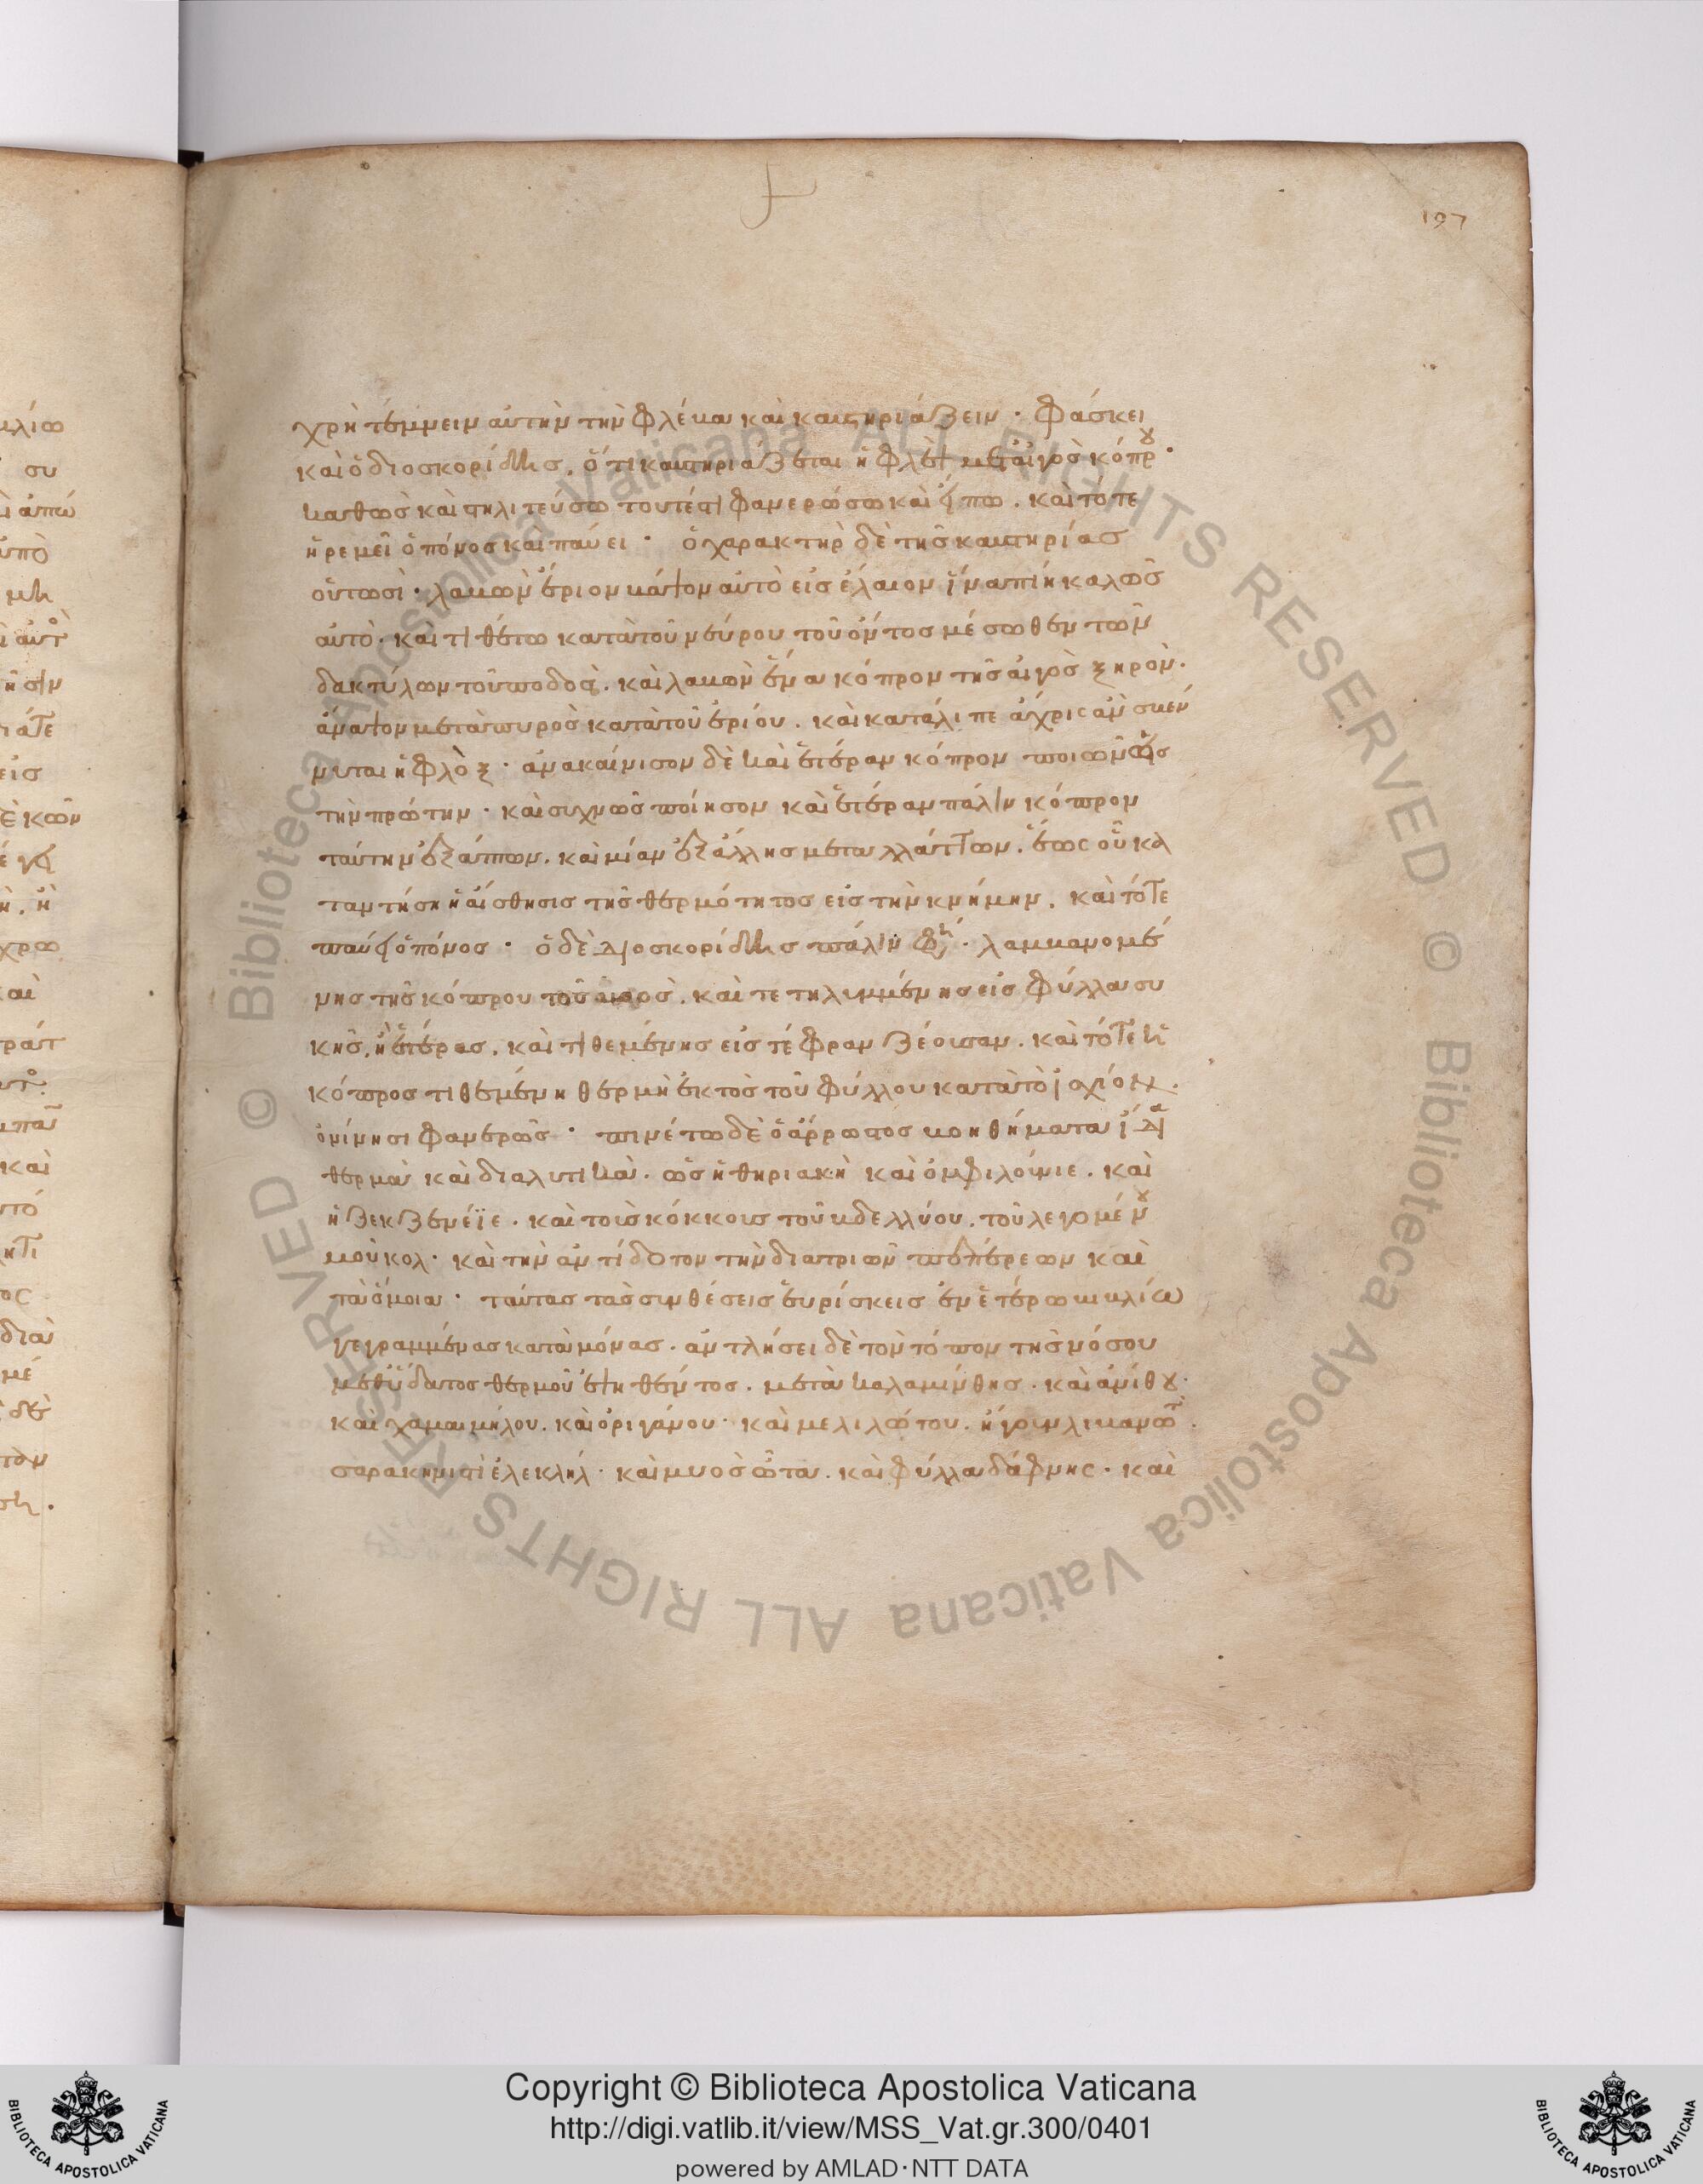 197
χρὴ τέμνειν αὐτὴν τὴν φλέβα καὶ καυτηριάζειν · φάσκει
καὶ ὁ διοσκορίδης, ὅτι καυτηριάζεται ἡ φλὲψ μετὰ αἰγὸς κόπρου ·
καθὼς καὶ στηλιτεύσω τουτέστι φανερώσω καὶ εἴπω. καὶ τότε
ἠρεμεῖ ὁ πόνος καὶ παύει · ὁ χαρακτὴρ δὲ τῆς καυτηρίας
οὑτωσὶ · λαβὼν ἔριον βάψον αὐτὸ εἰς ἔλαιον ἵνα πίῃ καλῶς
αὐτὸ · καὶ τιθέτω κατὰ τοῦ νεύρου τοῦ ὄντος μέσωθεν τῶν
δακτύλων τοῦ ποδός. καὶ λαβὼν ἕνα κόπρον τῆς αἰγὸς ξηρὸν.
ἄναψον μετὰ πυρὸς κατὰ τοῦ ἐρίου. καὶ κατάλιπε ἄχρις ἂν σβέν
νυται ἡ φλὸξ · ἀνακαίνισον δὲ καὶ ἑτέραν κόπρον ποιῶν ὡς
τὴν πρώτην · καὶ συχνῶς ποίησον καὶ ἑτέραν πάλιν κόπρον
ταύτην ἐξάπτων. καὶ μίαν ἐξ ἄλλης μεταλλάττων. ἕως οὗ κα
ταντήση ἡ αἴσθησις τῆς θερμότητος εἰς τὴν κνήμην. καὶ τότε
παύει ὁ πόνος · ὁ δὲ διοσκορίδης πάλιν φησί · λαμβανομέ
νης τῆς κόπρου τοῦ αἰγὸς. καὶ τετηλιμμένης εἰς φύλλα συ
κῆς, ἢ ἑτέρας. καὶ τιθεμένης εἰς τέφραν ζέουσαν. καὶ τότε ἡ
κόπρος τιθεμένη θερμὴ ἐκτὸς τοῦ φύλλου κατὰ τὸ ἰσχίον.
ὀνίνησι φανερῶς · πινέτω δὲ ὁ ἄρρωστος βοηθήματα ἴδια
θερμὰ καὶ διαλυτικὰ. ὡς ἡ θηριακὴ καὶ ὀνφιλόνιε. καὶ
ἡ ζεκζενέϊε. καὶ τοὺς κόκκους τοῦ βδελλύου. τοῦ λεγομένου
μούκολ · καὶ τὴν ἀντίδοτον τὴν διατριῶν πεπέρεων καὶ
τὰ ὅμοια · ταύτας τὰς συνθέσεις εὑρίσκεις ἐν ἑτέρω βιβλίω
γεγραμμένας κατὰ μόνας. ἀντλήσει δὲ τὸν τόπον τῆς νόσου
μεθ ὕδατος θερμοῦ ἑψηθέντος. μετὰ καλαμίνθης · καὶ ἀνίθου ·
καὶ χαμαιμήλου. καὶ ὀριγάνου · καὶ μελιλώτου. ἤγουν λιβανωτ.
σαρακηνιστὶ ἐλεκλήλ · καὶ μυοσῶτα. καὶ φύλλα δάφνης · καὶ
Copyright © Biblioteca Apostolica Vaticana
http://digi.vatlib.it/view/MSS_Vat.gr.300/0401
powered by AMLAD·NTT DATA